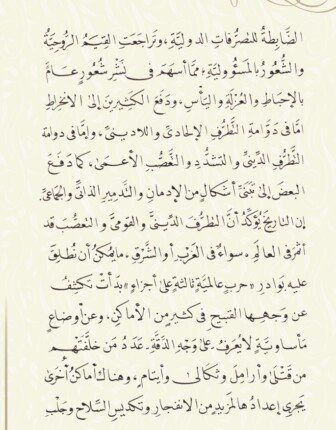 الضَّابِطةُ للتصرُّفاتِ الدوليَّةِ، وتَراجَعَتِ القِيَمُ الرُّوحِيَّةُ
والشُّعُورُ بالمَسئُوليَّةِ؛ ممَّا أسهَمَ فى نَشْرِ شُعُورٍ عامٍّ
بالإحباطِ والعُزلَةِ واليَأسِ، ودَفَعَ الكَثِيرينَ إلى الانخِراطِ
إمَّا فى دَوَّامةِ التَّطَرُّفِ الإلحادىِّ واللادينىِّ، وإمَّا فى دوامة
التَّطَرُّفِ الدِّينىِّ والتشدُّدِ والتَّعَصُّبِ الأعمى، كما دَفَعَ
البعضَ إلى تَبَنِّى أشكالٍ من الإدمانِ والتَّدمِيرِ الذاتىِّ والجماعىِّ.
إن التاريخَ يُؤكِّدُ أنَّ التطرُّفَ الدِّينىَّ والقومىَّ والتعصُّبَ قد
أثمَرَ فى العالَمِ، سواءٌ فى الغَرْبِ أو الشَّرْقِ، ما يُمكِنُ أن نُطلِقَ
عليه بَوادِر «حربٍ عالميَّةٍ ثالثةٍ على أجزاءٍ» بدَأتْ تكشِفُ
عن وَجهِها القبيحِ فى كثيرٍ من الأماكنِ، وعن أوضاعٍ
مَأساويَّةٍ لا يُعرَفُ - على وَجْهِ الدِّقَّةِ - عَدَدُ مَن خلَّفَتْهم
من قَتْلَى وأرامِلَ وثَكالى وأيتامٍ، وهناك أماكنُ أُخرَى
يَجرِى إعدادُها لمَزيدٍ من الانفجارِ وتكديسِ السِّلاحِ وجَلْبِ